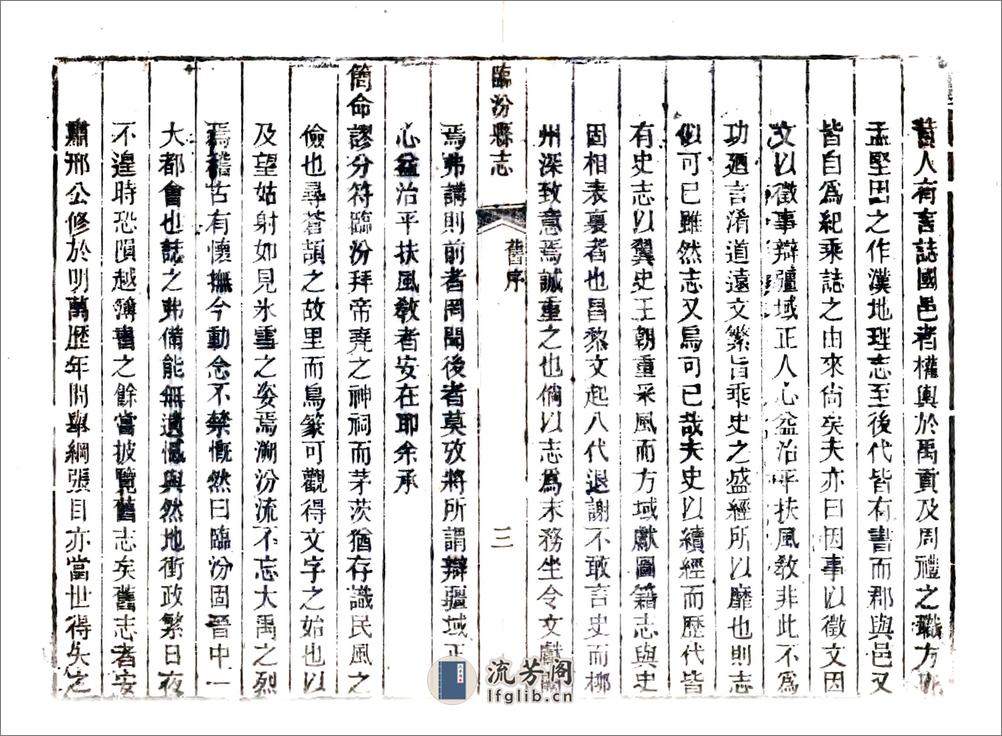 昔人有言誌國邑者權輿於禹貢及周禮之職方
孟堅因之作漢地理志至後代皆有書而郡與邑又
皆自爲紀乘誌之由來尙矣夫亦曰因事以徵文因
文以徵事辯疆域正人心益治平扶風敎非此不爲
功廼言淆道遠文繁旨乖史之盛經所以靡也則志
似可已雖然志又烏可已哉夫史以續經而歷代皆
有史志以翼史王朝重采風而方域獻圖籍志與史
固相表裏者也昌黎文起八代退謝不敢言史而柳
州深致意焉誠重之也倘以志爲末務坐令文獻
臨汾縣志
舊序
三
焉弗講則前者罔聞後者莫攷將所謂辯疆域正
心益治平扶風敎者安在耶余承
簡命謬分符臨汾拜帝堯之神祠而茅茨猶存識民風之
儉也尋蒼頡之故里而鳥篆可觀得文字之始也以
及望姑射如見氷雪之姿焉溯汾流不忘大禹之烈
焉稽古有懷撫今動念不禁慨然曰臨汾固晉中一
大都會也誌之弗備能無遺憾與然地衝政繁日夜
不遑時恐隕越簿書之餘當披覽舊志矣舊志者安
肅邢公修於明萬歷年間舉綱張目亦當世得失之
流芳阁
lfglib.cn